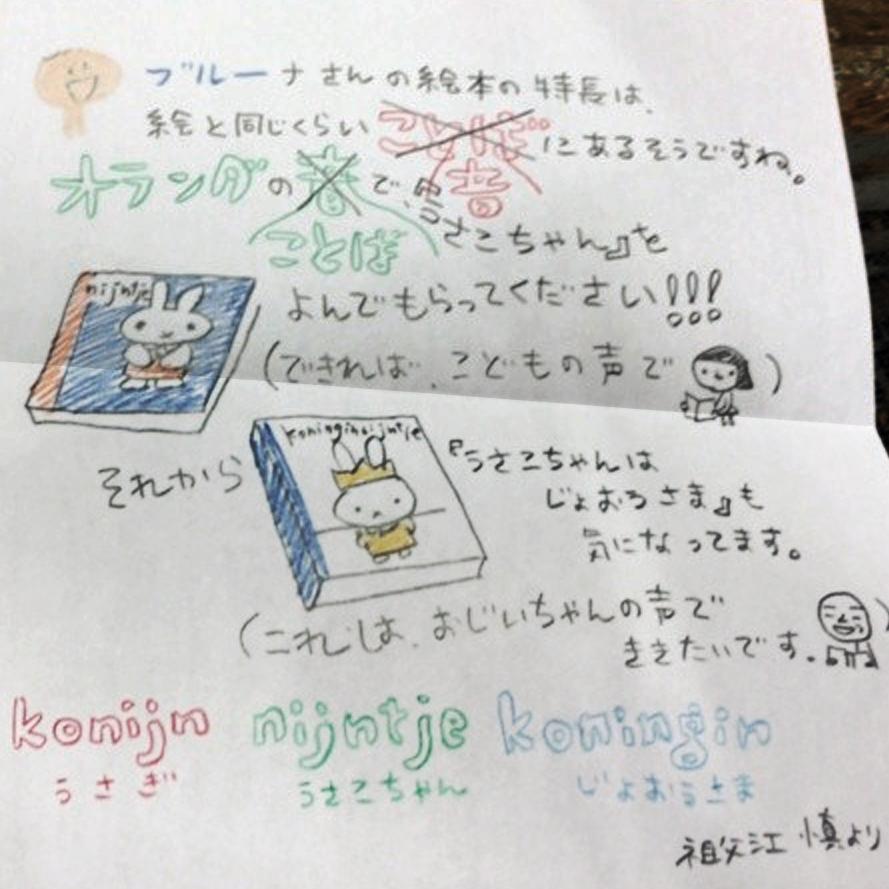 ブルーナさんの絵本の特長は、
絵と同じくらいことばにあるそうですね。
音
オランダの音で、『うさこちゃん』を
ことば
よんでもらってください!!!
nijntje
(できれば、こどもの声で)
koningin nijntje
それから『うさこちゃんは
じょおうさま』も
気になってます。
(これは、おじいちゃんの声で
ききたいです。)
konijn nijntje koningin
うさぎ うさこちゃん じょおうさま
祖父江 慎より